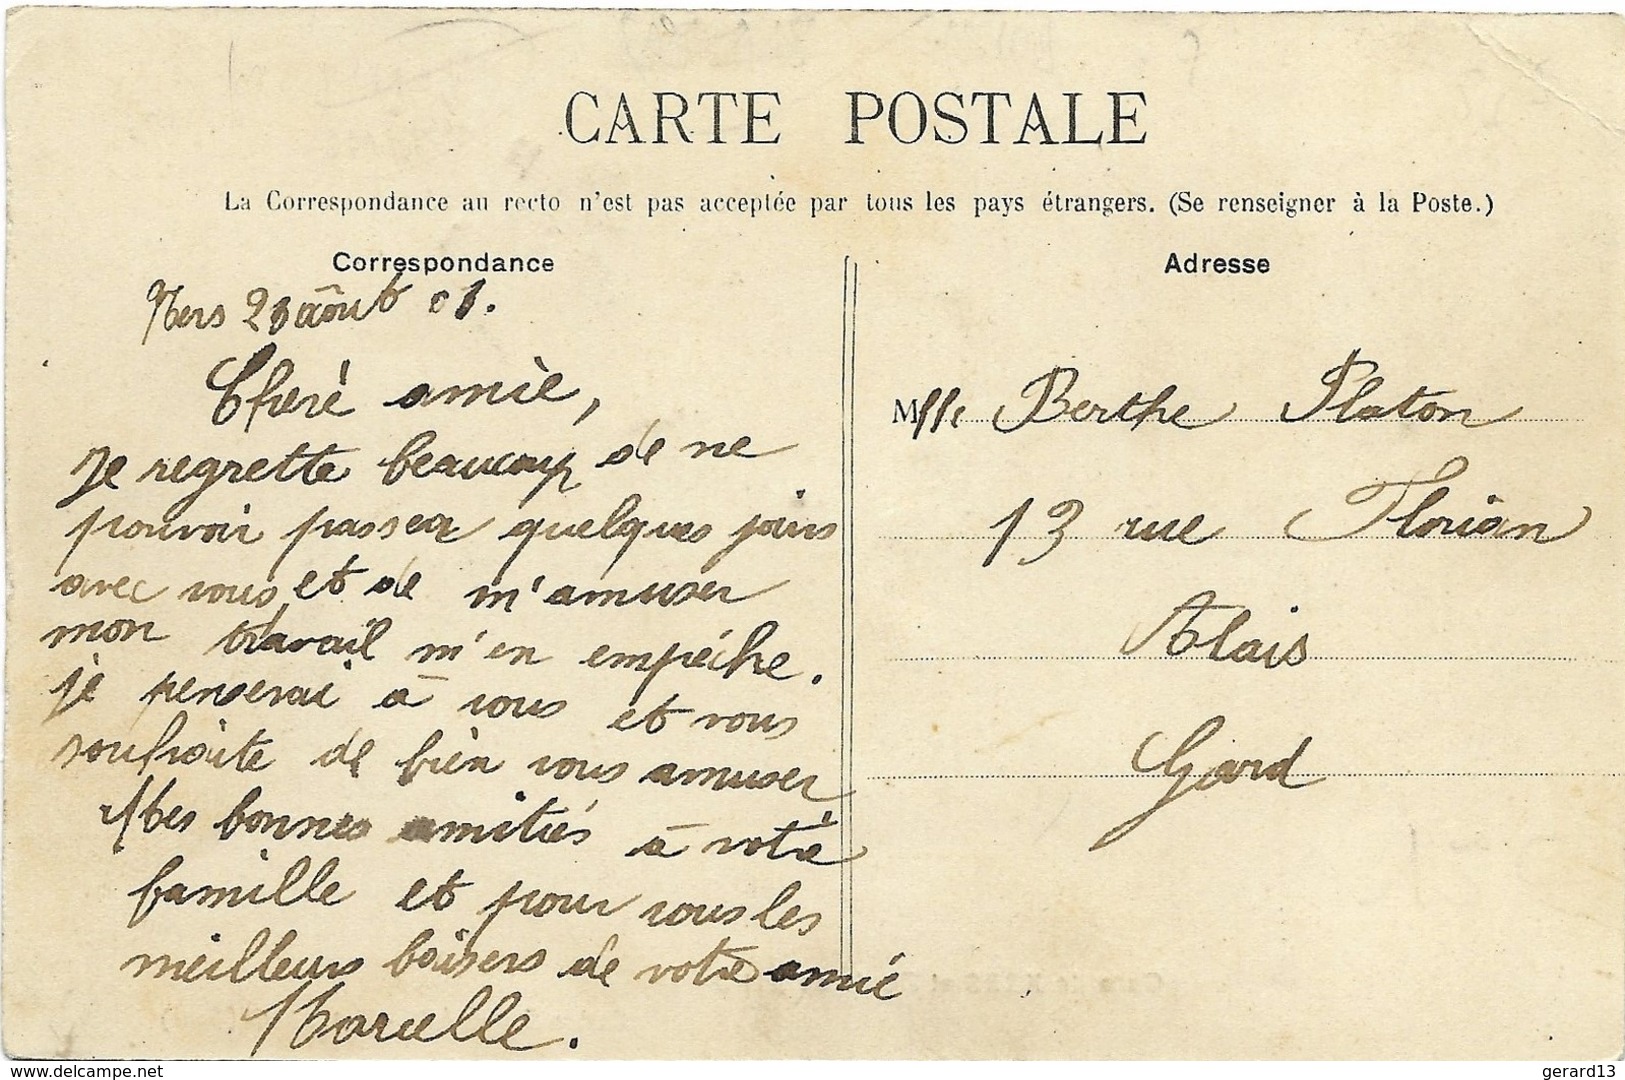 CARTE POSTALE
La Correspondance au recto n'est pas acceptée par tous les pays étrangers. (Se renseigner à la Poste.)
Correspondance
août
Cheré amie,
Je regrette beaucoup de ne
pouvoir passer quelques jours
avec vous et de m'amuser
mon travail m'en empéche.
je penserai à vous et vous
souhaite de bien vous amuser
Mes bonnes amitiés à votre
famille et pour vous les
meilleurs baisers de votre amie
Marcelle.
Adresse
Mlle Berthe Platon
13 rue Florian
Alais
Gard
delcampe.net
gerard13